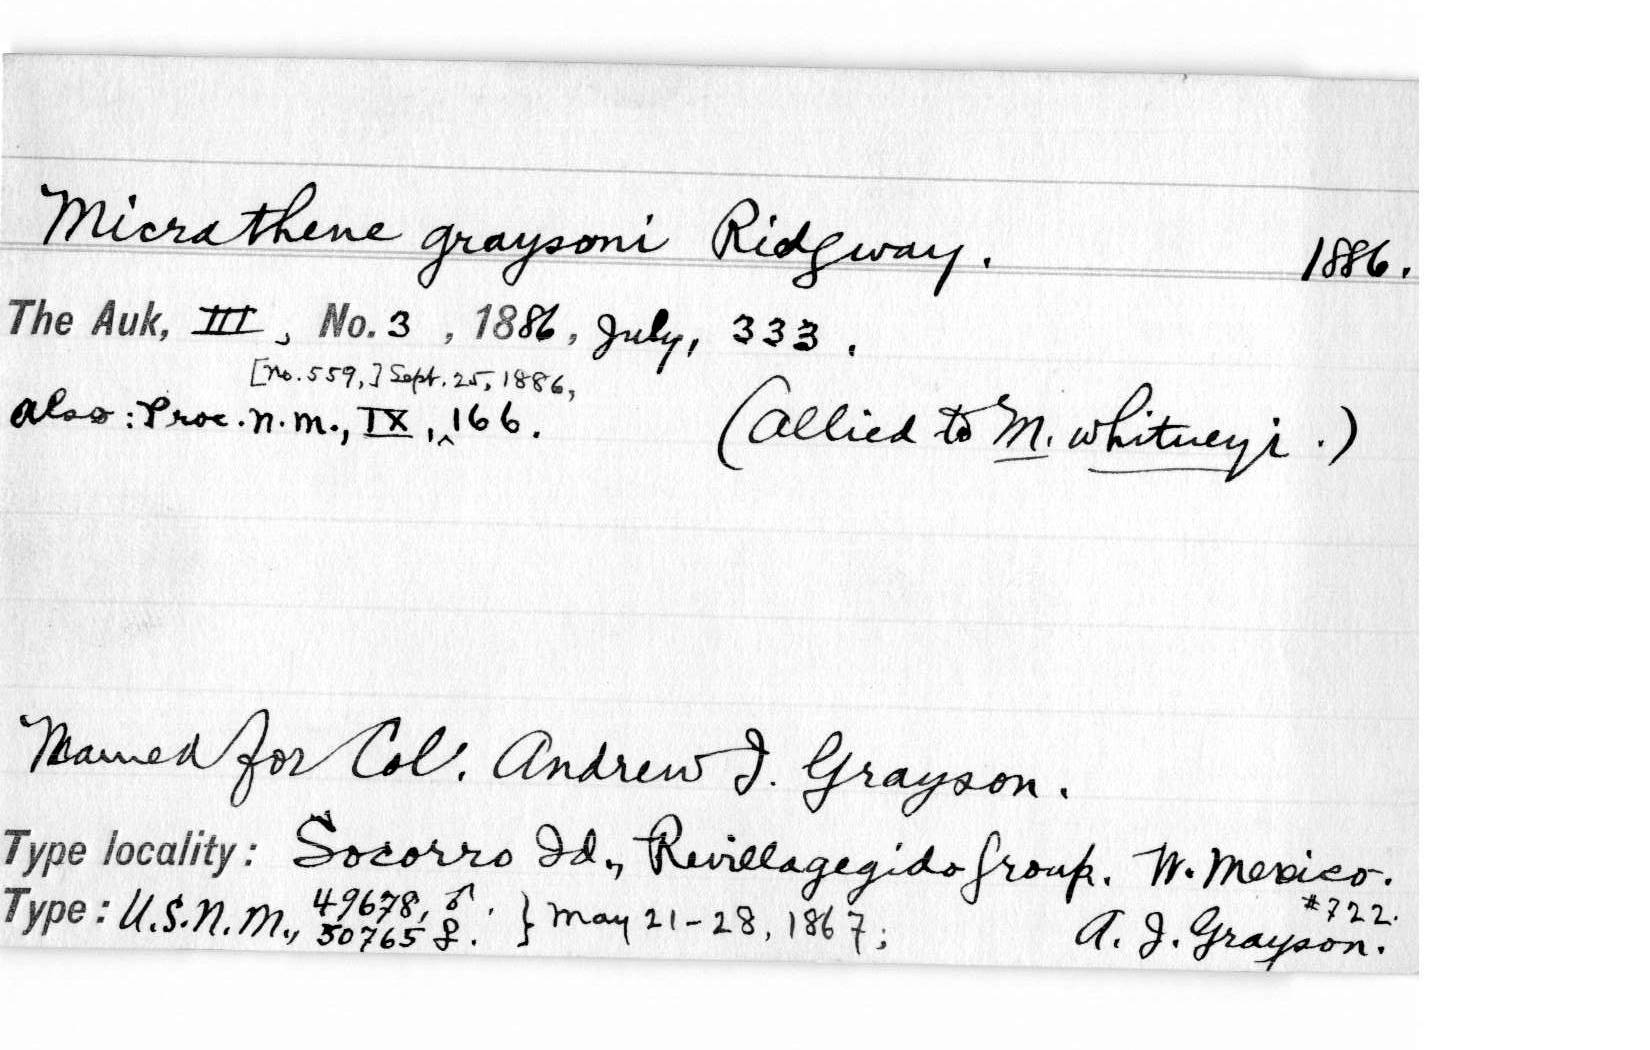 Micrathene graysoni Ridgway. 1886.
The Auk, III, No. 3, 1886, July, 333.
[no. 559,] Sept. 25, 1886,
also: Proc. N. M., IX, ^ 166. (allied to M. whitneyi.)
Named for Col. Andrew J. Grayson.
Type locality: Socorro Id., Revillagegido Group. W. Mexico.
Type: U.S.N.M., 49678, ♂. } May 21-28, 1867; #722.
50765 ♀. A. J. Grayson.